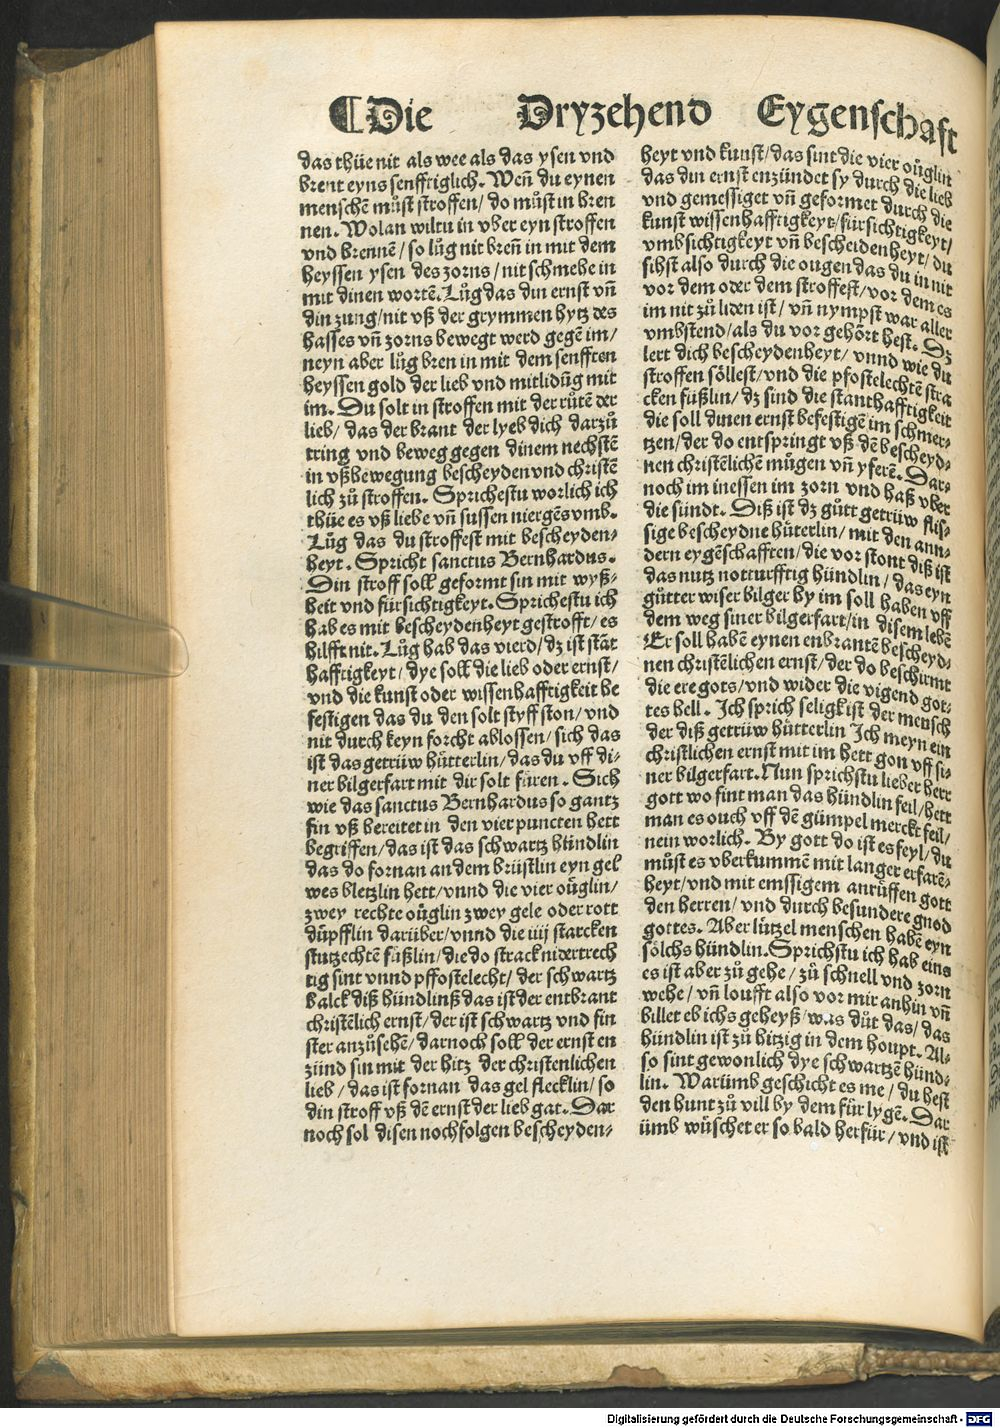 ¶Die Dryzehend Eygenschafft
das thüe nit als wee als das ysen vnd
brent eyns senfftiglich. Weñ du eynen
menschẽ můst stroffen / do můst in bren
nen. Wolan wiltu in vber eyn stroffen
vnd brennẽ / so lůg nit breñ in mit dem
heyssen ysen des zorns / nit schmehe in
mit dinen wortẽ. Lůg das din ernst vñ
din zung / nit vß der grymmen hytz des
hasses vñ zorns bewegt werd gegẽ im /
neyn aber lůg bren in mit dem senfften
heyssen gold der lieb vnd mitlidũg mit
im. Du solt in stroffen mit der růtẽ der
lieb / das der brant der lyeb dich darzů
tring vnd beweg gegen dinem nechstẽ
in vßbewegung bescheyden vnd christẽ
lich zů stroffen. Sprichestu worlich ich
thüe es vß liebe vñ sussen niergẽs vmb.
Lůg das du stroffest mit bescheyden⸗
heyt. Spricht sanctus Bernhardus.
Din stroff soll geformt sin mit wyß⸗
heit vnd fürsichtigkeyt. Sprichestu ich
hab es mit bescheydenheyt gestrofft / es
hilfft nit. Lůg hab das vierd / dz ist stãt
hafftigkeyt / dye soll die lieb oder ernst /
vnd die kunst oder wissenhafftigkeit be
festigen das du den solt styff ston / vnd
nit durch keyn forcht ablossen / sich das
ist das getrüw hütterlin / das du vff di⸗
ner bilgerfart mit dir solt füren. Sich
wie das sanctus Bernhardus so gantz
fin vß bereitet in den vier puncten hett
begriffen / das ist das schwartz hündlin
das do fornan an dem brüstlin eyn gel
wes bletzlin hett / vnnd die vier oüglin /
zwey rechte oüglin zwey gele oder rott
düpfflin darüber / vnnd die iiij starcken
stutzechtẽ füßlin / die do strack nidertrech
tig sint vnnd pffostelecht / der schwartz
balck diß hündlinß das ist der entbrant
christẽlich ernst / der ist schwartz vnd fin
ster anzůsehẽ / darnoch soll der ernst en
zünd sin mit der hitz der christenlichen
lieb / das ist fornan das gel flecklin / so
din stroff vß dẽ ernst der lieb gat. Dar
noch sol disen nochfolgen bescheyden⸗
heyt vnd kunst / das sint die vier oüglin
das din ernst enzündet sy durch die lieb
vnd gemessiget vñ geformet durch die
kunst wissenhafftigkeyt / fürsichtigkeyt /
vmbsichtigkeyt vñ bescheidenheyt / du
sihst also durch die ougen das du in nit
vor dem oder dem stroffest / vor dem es
im nit zů liden ist / vñ nympst war aller
vmbstend / als du vor gehört hest. Dz
lert dich bescheydenheyt / vnnd wie du
stroffen söllest / vnd die pfostelechtẽ stra
cken füßlin / dz sind die stanthafftigkeit
die soll dinen ernst befestigẽ im schmer⸗
tzen / der do entspringt vß dẽ bescheyd⸗
nen christẽlichẽ můgen vñ yferẽ. Dar⸗
noch im inessen im zorn vnd haß vber
die sündt. Diß ist dz gůtt getrüw flis⸗
sige bescheydne hüterlin / mit den ann⸗
dern eygẽschafften / die vor stont diß ist
das nutz notturfftig hündlin / das eyn
gůtter wiser bilger by im soll haben vff
dem weg siner bilgerfart / in disem lebẽ
Er soll habẽ eynen enbrantẽ bescheyd⸗
nen christẽlichen ernst / der do beschirmt
die ere gots / vnd wider die vigend got⸗
tes bell. Ich sprich selig ist der mensch
der diß getrüw hütterlin Ich meyn ein
christlichen ernst mit im hett gon vff si⸗
ner bilgerfart. Nun sprichstu lieber herr
gott wo fint man das hündlin feil / hett
man es ouch vff dẽ gümpel merckt feil /
nein worlich. By gott do ist es feyl / du
můst es vberkummẽ mit langer erfarẽ⸗
heyt / vnd mit emssigem anrüffen gott
den herren / vnd durch besundere gnod
gottes. Aber lützel menschen habẽ eyn
sölchs hündlin. Sprichstu ich hab eins
es ist aber zů gehe / zů schnell vnd zorn
wehe / vñ loufft also vor mir anhin vñ
billet eb ichs geheyß / was düt das / das
hündlin ist zů hitzig in dem houpt. Al⸗
so sint gewonlich dye schwartzẽ hünd⸗
lin. Warümb geschicht es me / du hest
den hunt zů vill by dem für lygẽ. Dar
ümb wüschet er so bald herfür / vnd ist
Digitalisierung gefördert durch die Deutsche Forschungsgemeinschaft - DFG